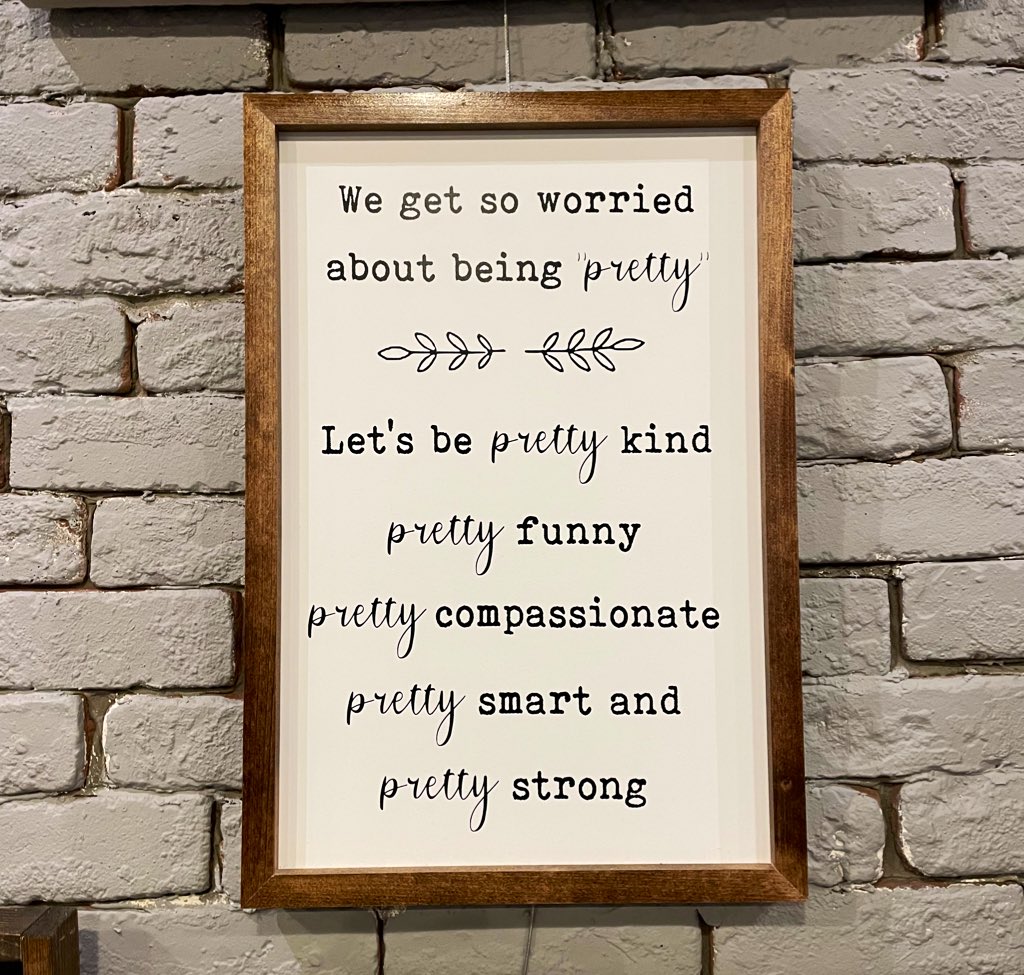 We get so worried
about being "pretty"
Let's be pretty kind
pretty funny
pretty compassionate
pretty smart and
pretty strong